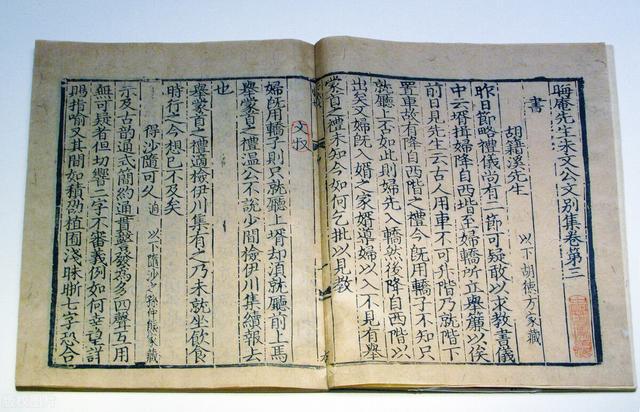 晦庵先生朱文公文別集卷第三
書
胡籍溪先生 以下胡德方家藏
昨日節略禮儀尚有一節可疑敢以求教書儀
中云壻揖婦降自西階至婦轎所立舉簾以俟
前日見先生云古人用車不可升階乃就階下
置車故有降自西階之禮今既用轎子不知只
就廳上否如此則婦先入轎然後降自西階以
出矣又婦既入婿之家婿導婦以入不見有舉
蒙首之禮未知今如何乞批以見教
文叔
婦既用轎子則只就廳上壻却須就廳前上馬
舉蒙首之禮溫公不說少間檢伊川集續報去
也
舉蒙首之禮適檢伊川集有之乃未就坐飲食
時行之今想已不及矣
得沙隨可久 以下隨沙 孫仲熊家藏
示及古韻通式簡約通貫警發為多四聲互用
無可疑者但切響二字不審義例如何幸望詳
賜指喻又其間如積劭植園淺昧晰七字恐合